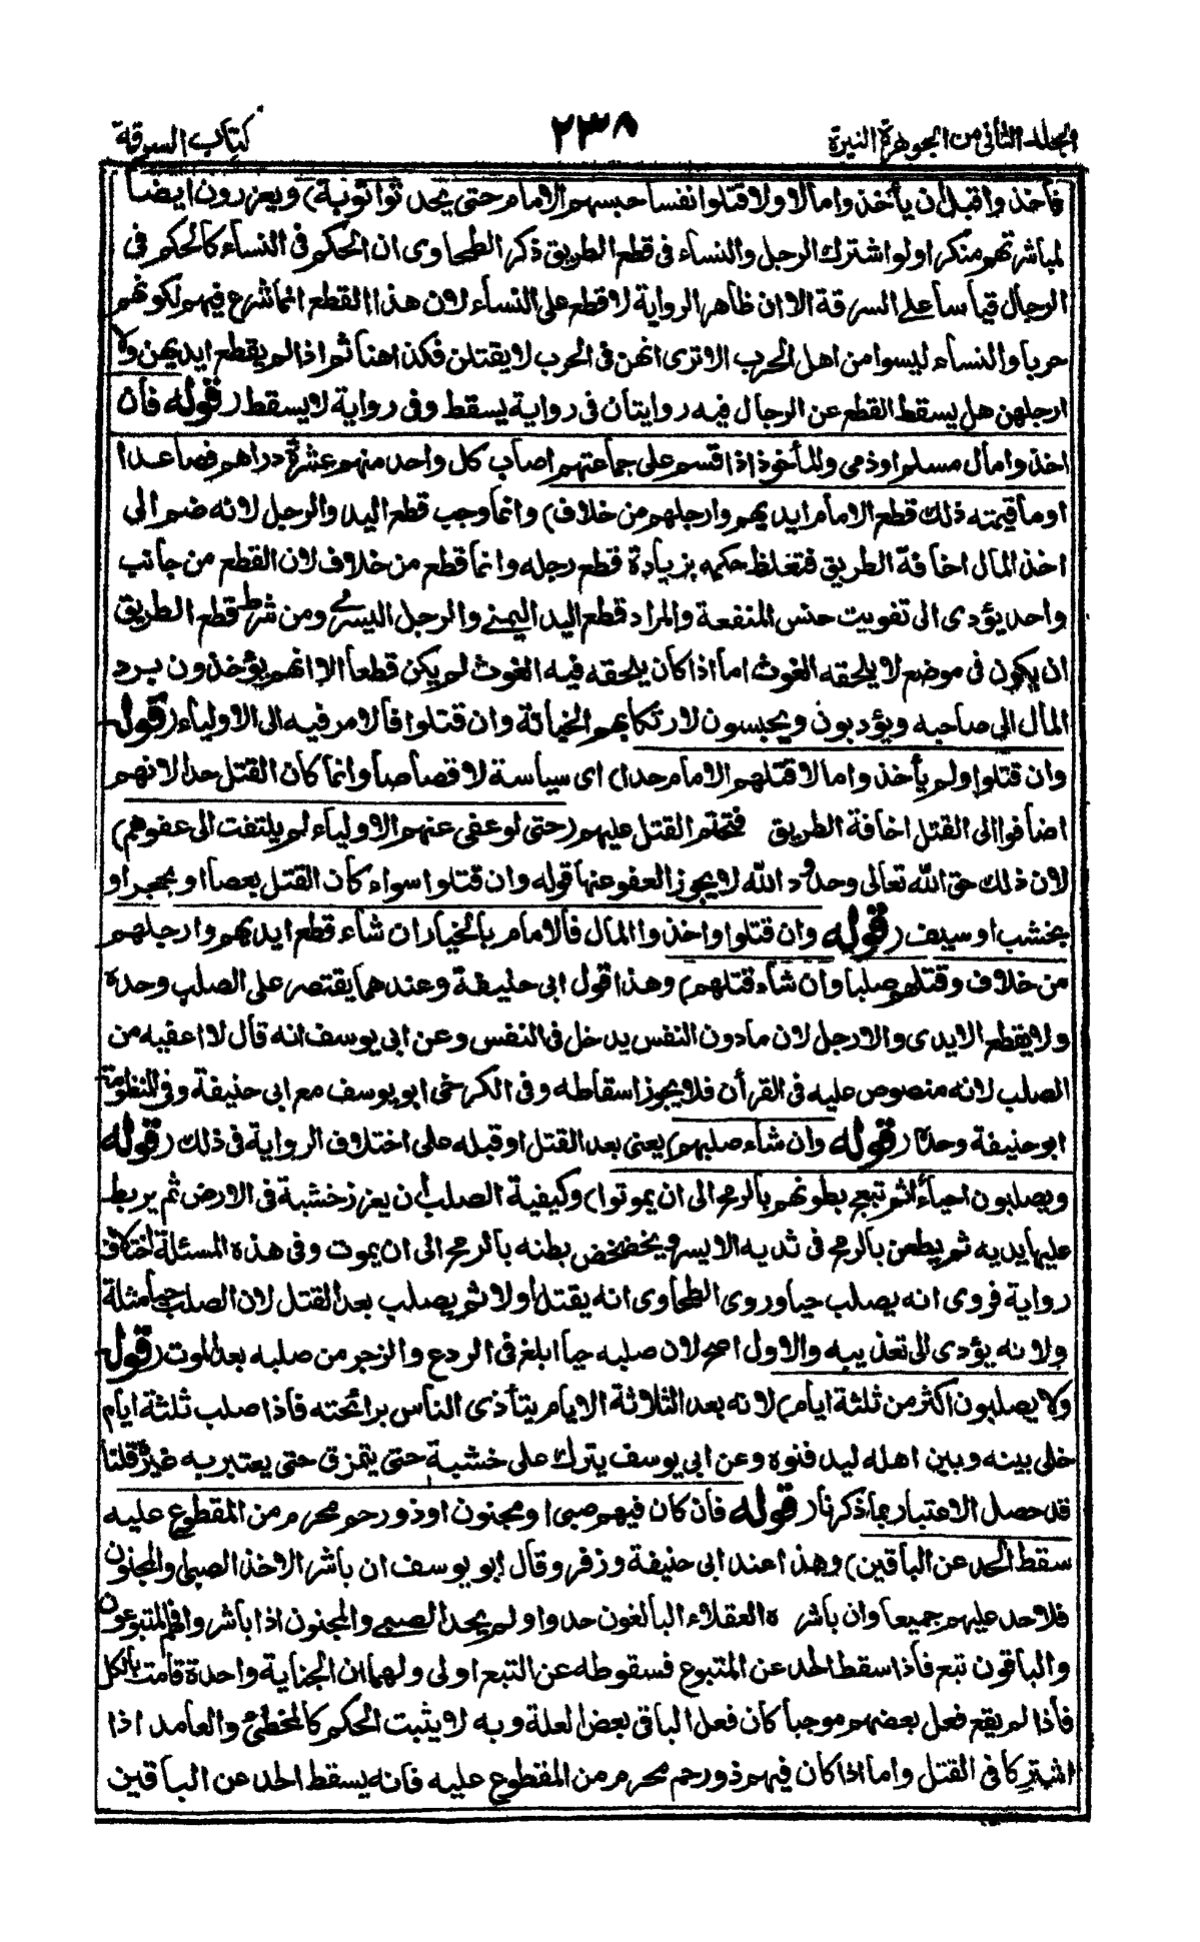 المجلد الثانى من الجوهرة النيرة
٢٣٨
كتاب السرقة
فأخذوا قبل ان يأخذوا مالا ولا قتلوا نفسا حبسهم الامام حتى يحدثوا توبة) ويعزرون ايضا
لمباشرتهم منكرا ولو اشترك الرجل والنساء فى قطع الطريق ذكر الطحاوى ان الحكم فى النساء كالحكم فى
الرجال قياسا على السرقة الا ان ظاهر الرواية لا قطع على النساء لان هذا القطع انما شرع فيهم لكونهم
حربا والنساء ليسوا من اهل الحرب الا ترى انهن فى الحرب لا يقتلن فكذا هنا ثم اذا لم يقطع ايديهن ولا
ارجلهن هل يسقط القطع عن الرجال فيه روايتان فى رواية يسقط وفى رواية لا يسقط (قوله فان
اخذوا مال مسلم او ذمى والمأخوذ اذا قسم على جماعتهم اصاب كل واحد منهم عشرة دراهم فصاعدا
او ما قيمته ذلك قطع الامام ايديهم وارجلهم من خلاف) وانما وجب قطع اليد والرجل لانه ضم الى
اخذ المال اخافة الطريق فتغلظ حكمه بزيادة قطع رجله وانما قطع من خلاف لان القطع من جانب
واحد يؤدى الى تفويت جنس المنفعة والمراد قطع اليد اليمنى والرجل اليسرى ومن شرط قطع الطريق
ان يكون فى موضع لا يلحقه الغوث اما اذا كان يلحقه فيه الغوث لم يكن قطعا الا انهم يؤخذون برد
المال الى صاحبه ويؤدبون ويحبسون لارتكابهم الخيانة وان قتلوا فالامر فيه الى الاولياء (قوله
وان قتلوا ولم يأخذوا مالا قتلهم الامام حدا) اى سياسة لا قصاصا وانما كان القتل حدا لانهم
اضافوا الى القتل اخافة الطريق فتحتم القتل عليهم (حتى لو عفى عنهم الاولياء لم يلتفت الى عفوهم)
لان ذلك حق الله تعالى وحدود الله لا يجوز العفو عنها قوله وان قتلوا سواء كان القتل بعصا او بحجر او
بخشب او سيف (قوله وان قتلوا واخذوا المال فالامام بالخيار ان شاء قطع ايديهم وارجلهم
من خلاف وقتلهم صلبا وان شاء قتلهم) وهذا قول ابى حنيفة وعندهما يقتصر على الصلب وحده
ولا يقطع الايدى والارجل لان ما دون النفس يدخل فى النفس وعن ابى يوسف انه قال لا اعفيه من
الصلب لانه منصوص عليه فى القرأن فلا يجوز اسقاطه وفى الكرخى ابو يوسف مع ابى حنيفة وفى المنظومة
ابو حنيفة وحده (قوله وان شاء صلبهم) يعنى بعد القتل او قبله على اختلاف الرواية فى ذلك (قوله
ويصلبون احياء ثم تبعج بطونهم بالرمح الى ان يموتوا) وكيفية الصلب ان يعزز خشبة فى الارض ثم يربط
عليها يديه ثم يطعن بالرمح فى ثديه الايسر ويخضخض بطنه بالرمح الى ان يموت وفى هذه المسئلة اختلاف
رواية فروى انه يصلب حيا وروى الطحاوى انه يقتل اولا ثم يصلب بعد القتل لان الصلب حيا مثلة
ولانه يؤدى الى تعذيبه والاول اصح لان صلبه حيا ابلغ فى الردع والزجر من صلبه بعد الموت (قوله
ولا يصلبون اكثر من ثلثة ايام) لانه بعد الثلاثة الايام يتأذى الناس برائحته فاذا صلب ثلثة ايام
خلى بينه وبين اهله ليدفنوه وعن ابى يوسف يترك على خشبة حتى يتمزق حتى يعتبر به غيره قلنا
قد حصل الاعتبار بما ذكرنا (قوله فان كان فيهم صبى او مجنون او ذو رحم محرم من المقطوع عليه
سقط الحد عن الباقين) وهذا عند ابى حنيفة وزفر وقال ابو يوسف ان باشر الاخذ الصبى والمجنون
فلا حد عليهم جميعا وان باشره العقلاء البالغون حدوا ولم يحد الصبى والمجنون اذا باشروا فهم المتبوعون
والباقون تبع فاذا سقط الحد عن المتبوع فسقوطه عن التبع اولى ولهما ان الجناية واحدة قامت بالكل
فاذا لم يقع فعل بعضهم موجبا كان فعل الباقى بعض العلة وبه لا يثبت الحكم كالمخطئ والعامد اذا
اشتركا فى القتل واما اذا كان فيهم ذو رحم محرم من المقطوع عليه فانه يسقط الحد عن الباقين